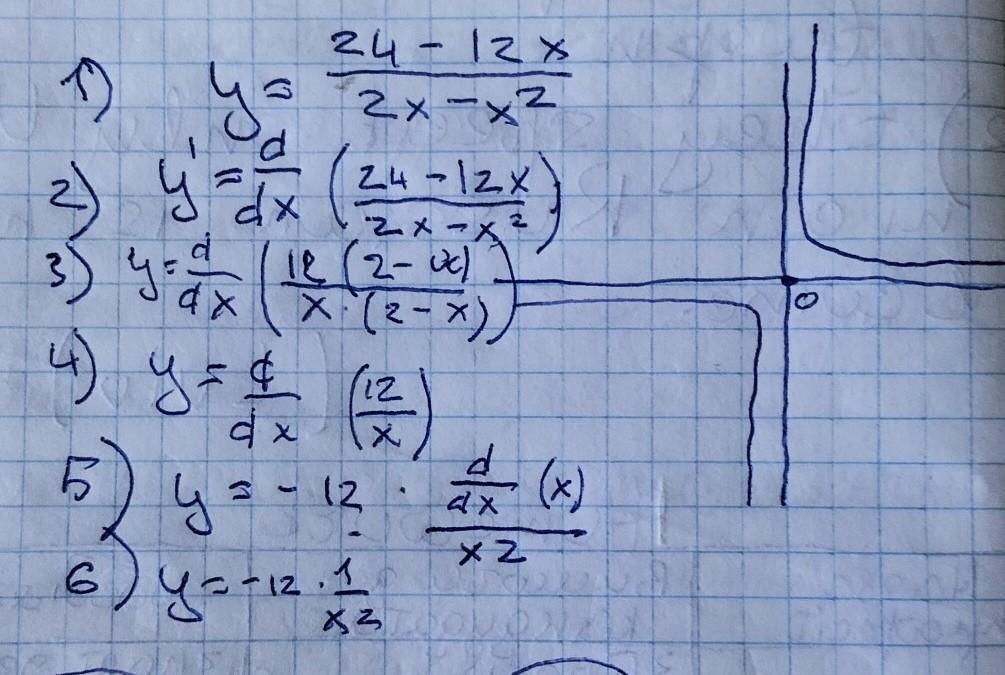 1) y = (24 - 12x)/(2x - x²)
2) y' = d/dx ((24 - 12x)/(2x - x²))
3) y = d/dx ((12 (2 - x))/(x · (2 - x)))
4) y = d/dx (12/x)
5) y = - 12 · (d/dx (x))/(x2)
6) y = -12 · 1/(x2)
0